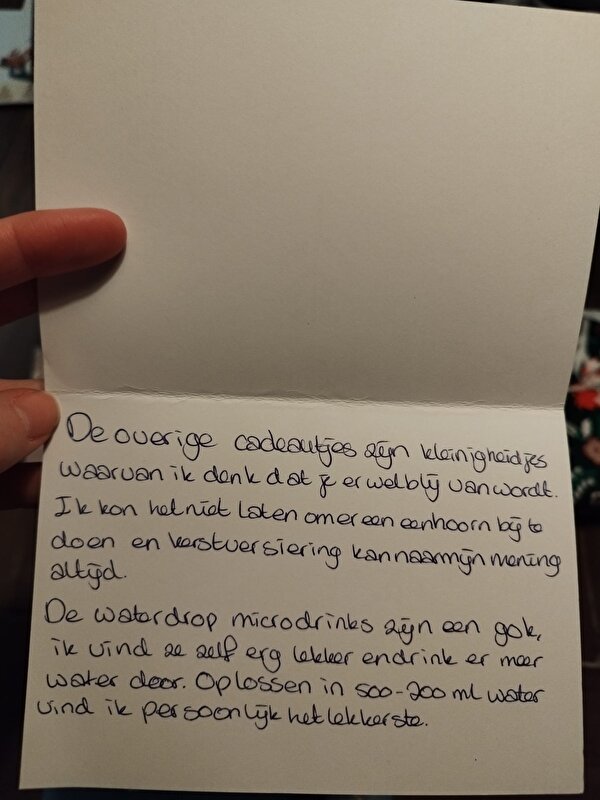 De overige cadeautjes zijn kleinigheidjes
waarvan ik denk dat je er wel blij van wordt.
Ik kon het niet laten om er een eenhoorn bij te
doen en kerstversiering kan naar mijn mening
altijd.
De waterdrop microdrinks zijn een gok,
ik vind ze zelf erg lekker en drink er meer
water door. Oplossen in 500-700 ml water
vind ik persoonlijk het lekkerste.